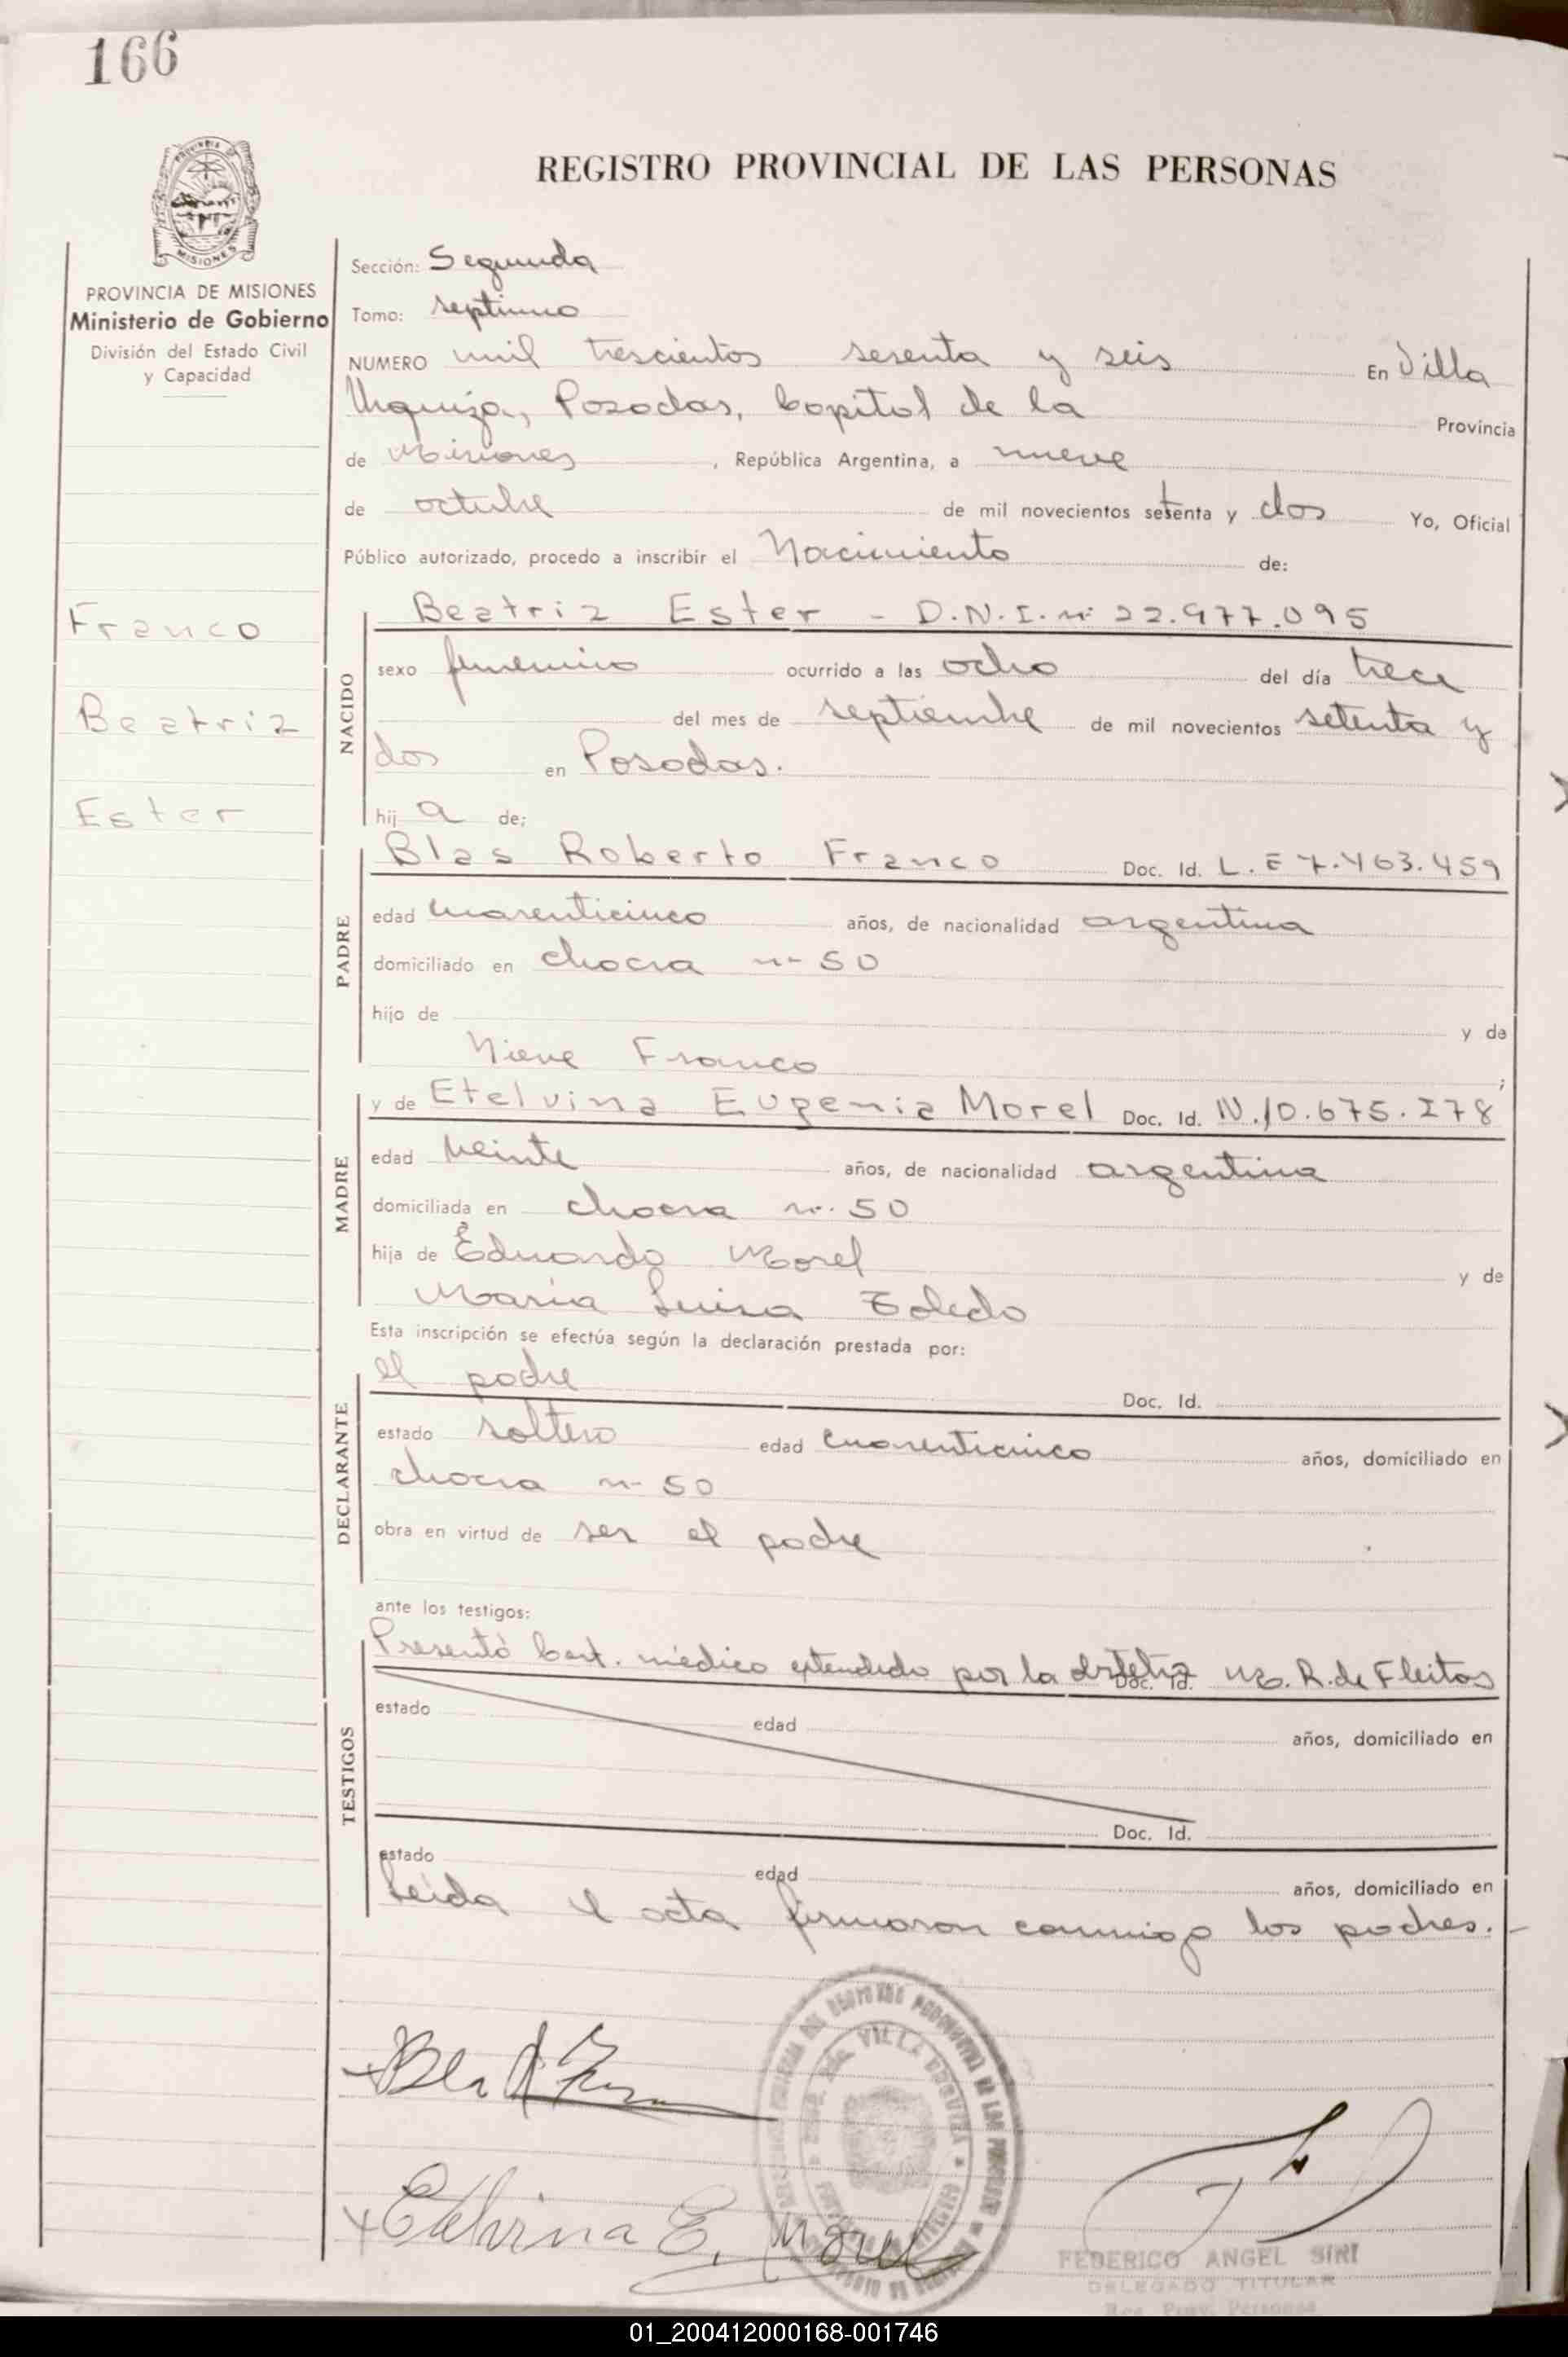 166
REGISTRO PROVINCIAL DE LAS PERSONAS
MISIONES
PROVINCIA DE MISIONES
Ministerio de Gobierno
División del Estado Civil
y Capacidad
Sección: Segunda
Tomo: septimo
NUMERO mil trescientos sesenta y seis En Villa
Urquiza, Posadas, Capital de la Provincia
de Misiones, República Argentina, a nueve
de octubre de mil novecientos setenta y dos Yo, Oficial
Público autorizado, procedo a inscribir el Nacimiento de:
Franco
Beatriz
Ester
NACIDO
Beatriz Ester - D.N.I. nº 22.977.095
sexo femenino ocurrido a las ocho del día trece
del mes de septiembre de mil novecientos setenta y
dos en Posadas.
hija de:
PADRE
Blas Roberto Franco Doc. Id. L.E 7.463.459
edad cuarenticinco años, de nacionalidad argentina
domiciliado en chacra nº 50
hijo de y de
Nieve Franco ;
MADRE
y de Etelvina Eugenia Morel Doc. Id. N.10.675.278
edad veinte años, de nacionalidad argentina
domiciliada en chacra nº. 50
hija de Eduardo Morel y de
María Luisa Toledo
Esta inscripción se efectúa según la declaración prestada por:
DECLARANTE
el padre Doc. Id.
estado soltero edad cuarenticinco años, domiciliado en
chacra nº 50
obra en virtud de ser el padre
ante los testigos:
TESTIGOS
Presentó Cert. médico extendido por la Doc. Id. M. R. de Fleitas
estado edad años, domiciliado en
Doc. Id.
estado edad años, domiciliado en
Leída el acta firmaron conmigo los padres.-
Etelvina E. Morel
VILLA URQUIZA
FEDERICO ANGEL SIRI
DELEGADO TITULAR
Reg. Prov. Personas
01_200412000168-001746